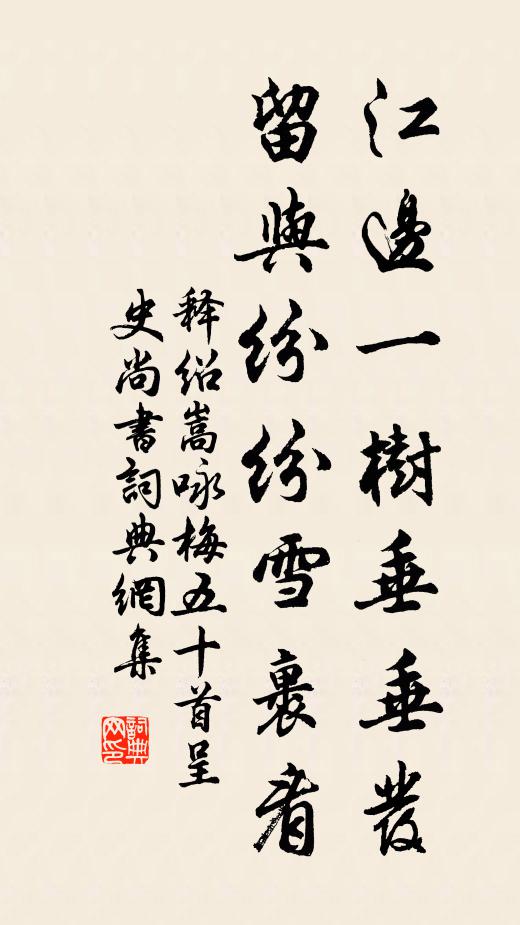 江邊一樹垂垂發
留與紛紛雪裏看
释绍嵩咏梅五十首呈
史尚書詞典網集
詞典
网印